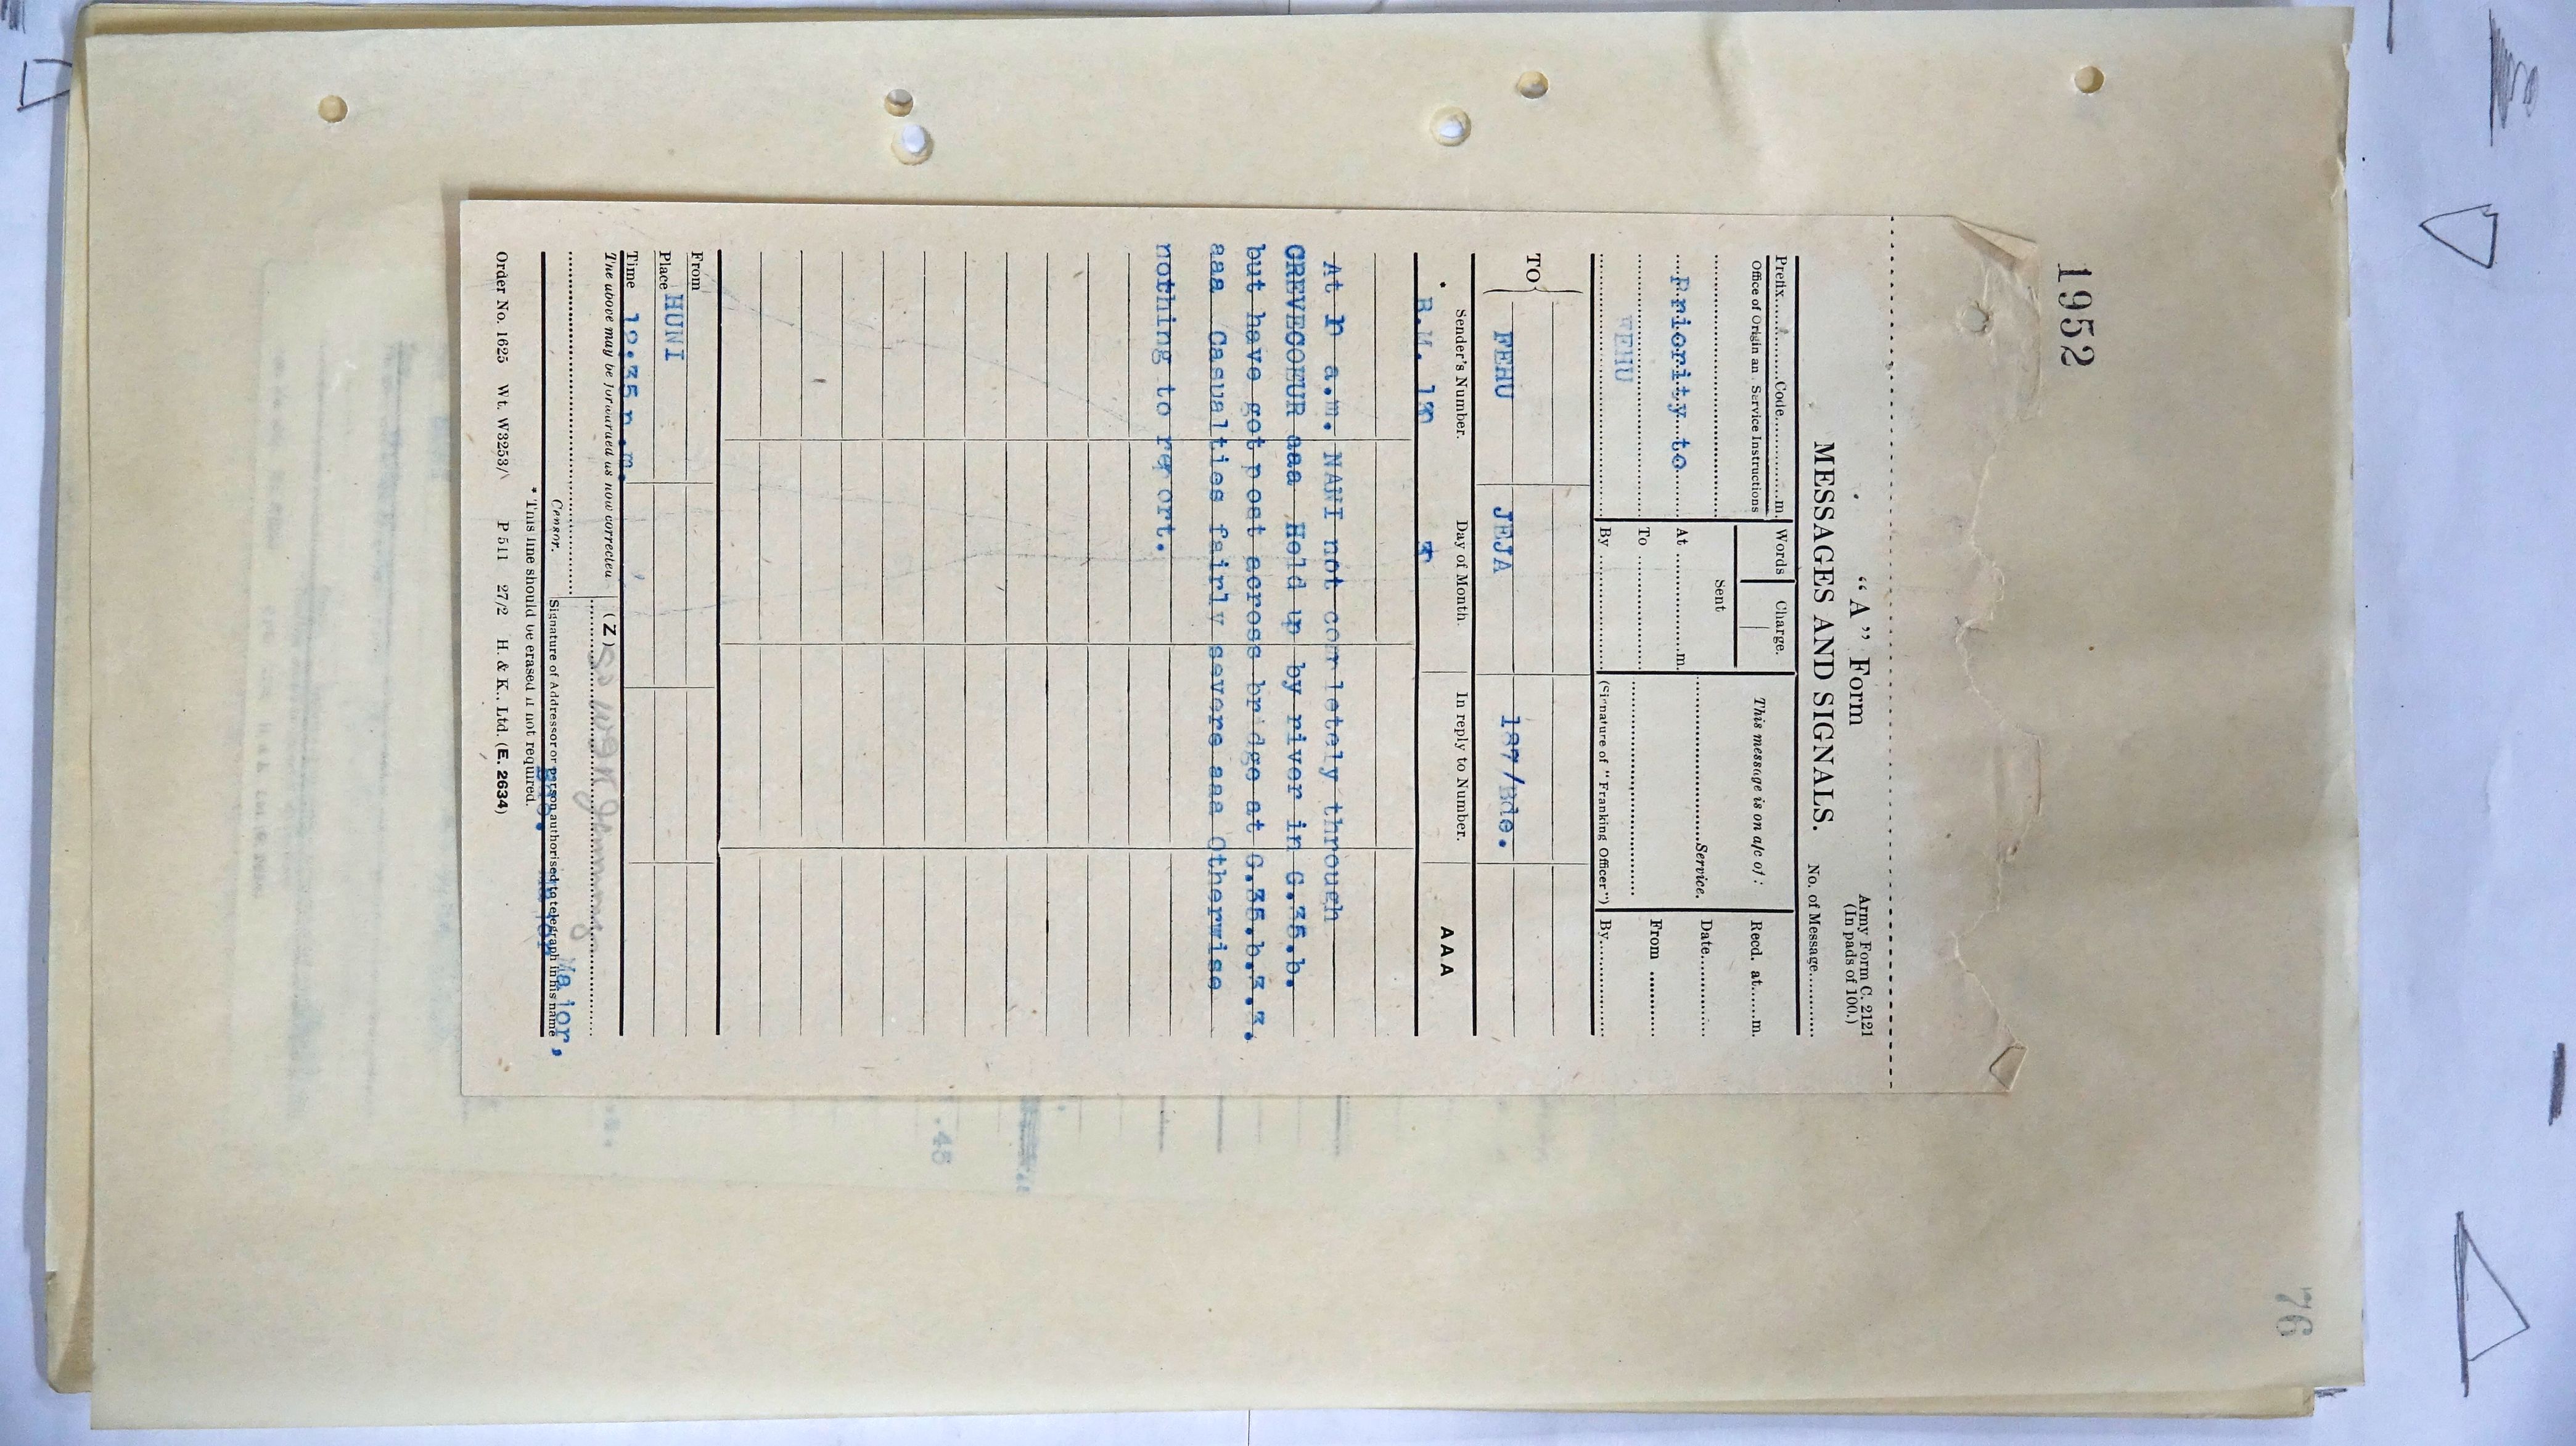 1952
76
"A" Form
Army Form C. 2121
(In pads of 100.)
MESSAGES AND SIGNALS.
No. of Message............
Prefix......Code............m.
Words
Charge.
This message is on a/c of :
Recd. at......m.
Office of Origin an Service Instructions
Priority to
FEHU
Sent
At ...............m.
To ...............
By ...............
.....................Service.
(Signature of "Franking Officer")
Date............
From ..........
By............
TO
FEHU
JEJA
187/Bde.
Sender's Number.
Day of Month.
In reply to Number.
AAA
B.M.
At a.m. NANI not completely through
CREVECOEUR aaa Held up by river in G.35.b.
but have got post across bridge at G.35.b.3.3.
aaa Casualties fairly severe aaa Otherwise
nothing to report.
From
Place HUNI
Time 12.35 p.m.
The above may be forwarded as now corrected
(Z)
Censor.
Signature of Addressor or person authorised to telegraph in his name
Major,
Bde. Major
* This line should be erased if not required.
Order No. 1625 Wt. W3253/ P 511 27/2 H. & K., Ltd. (E. 2634)
.45